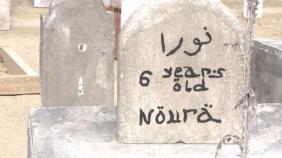 نورا
6 years
old
Nöurä